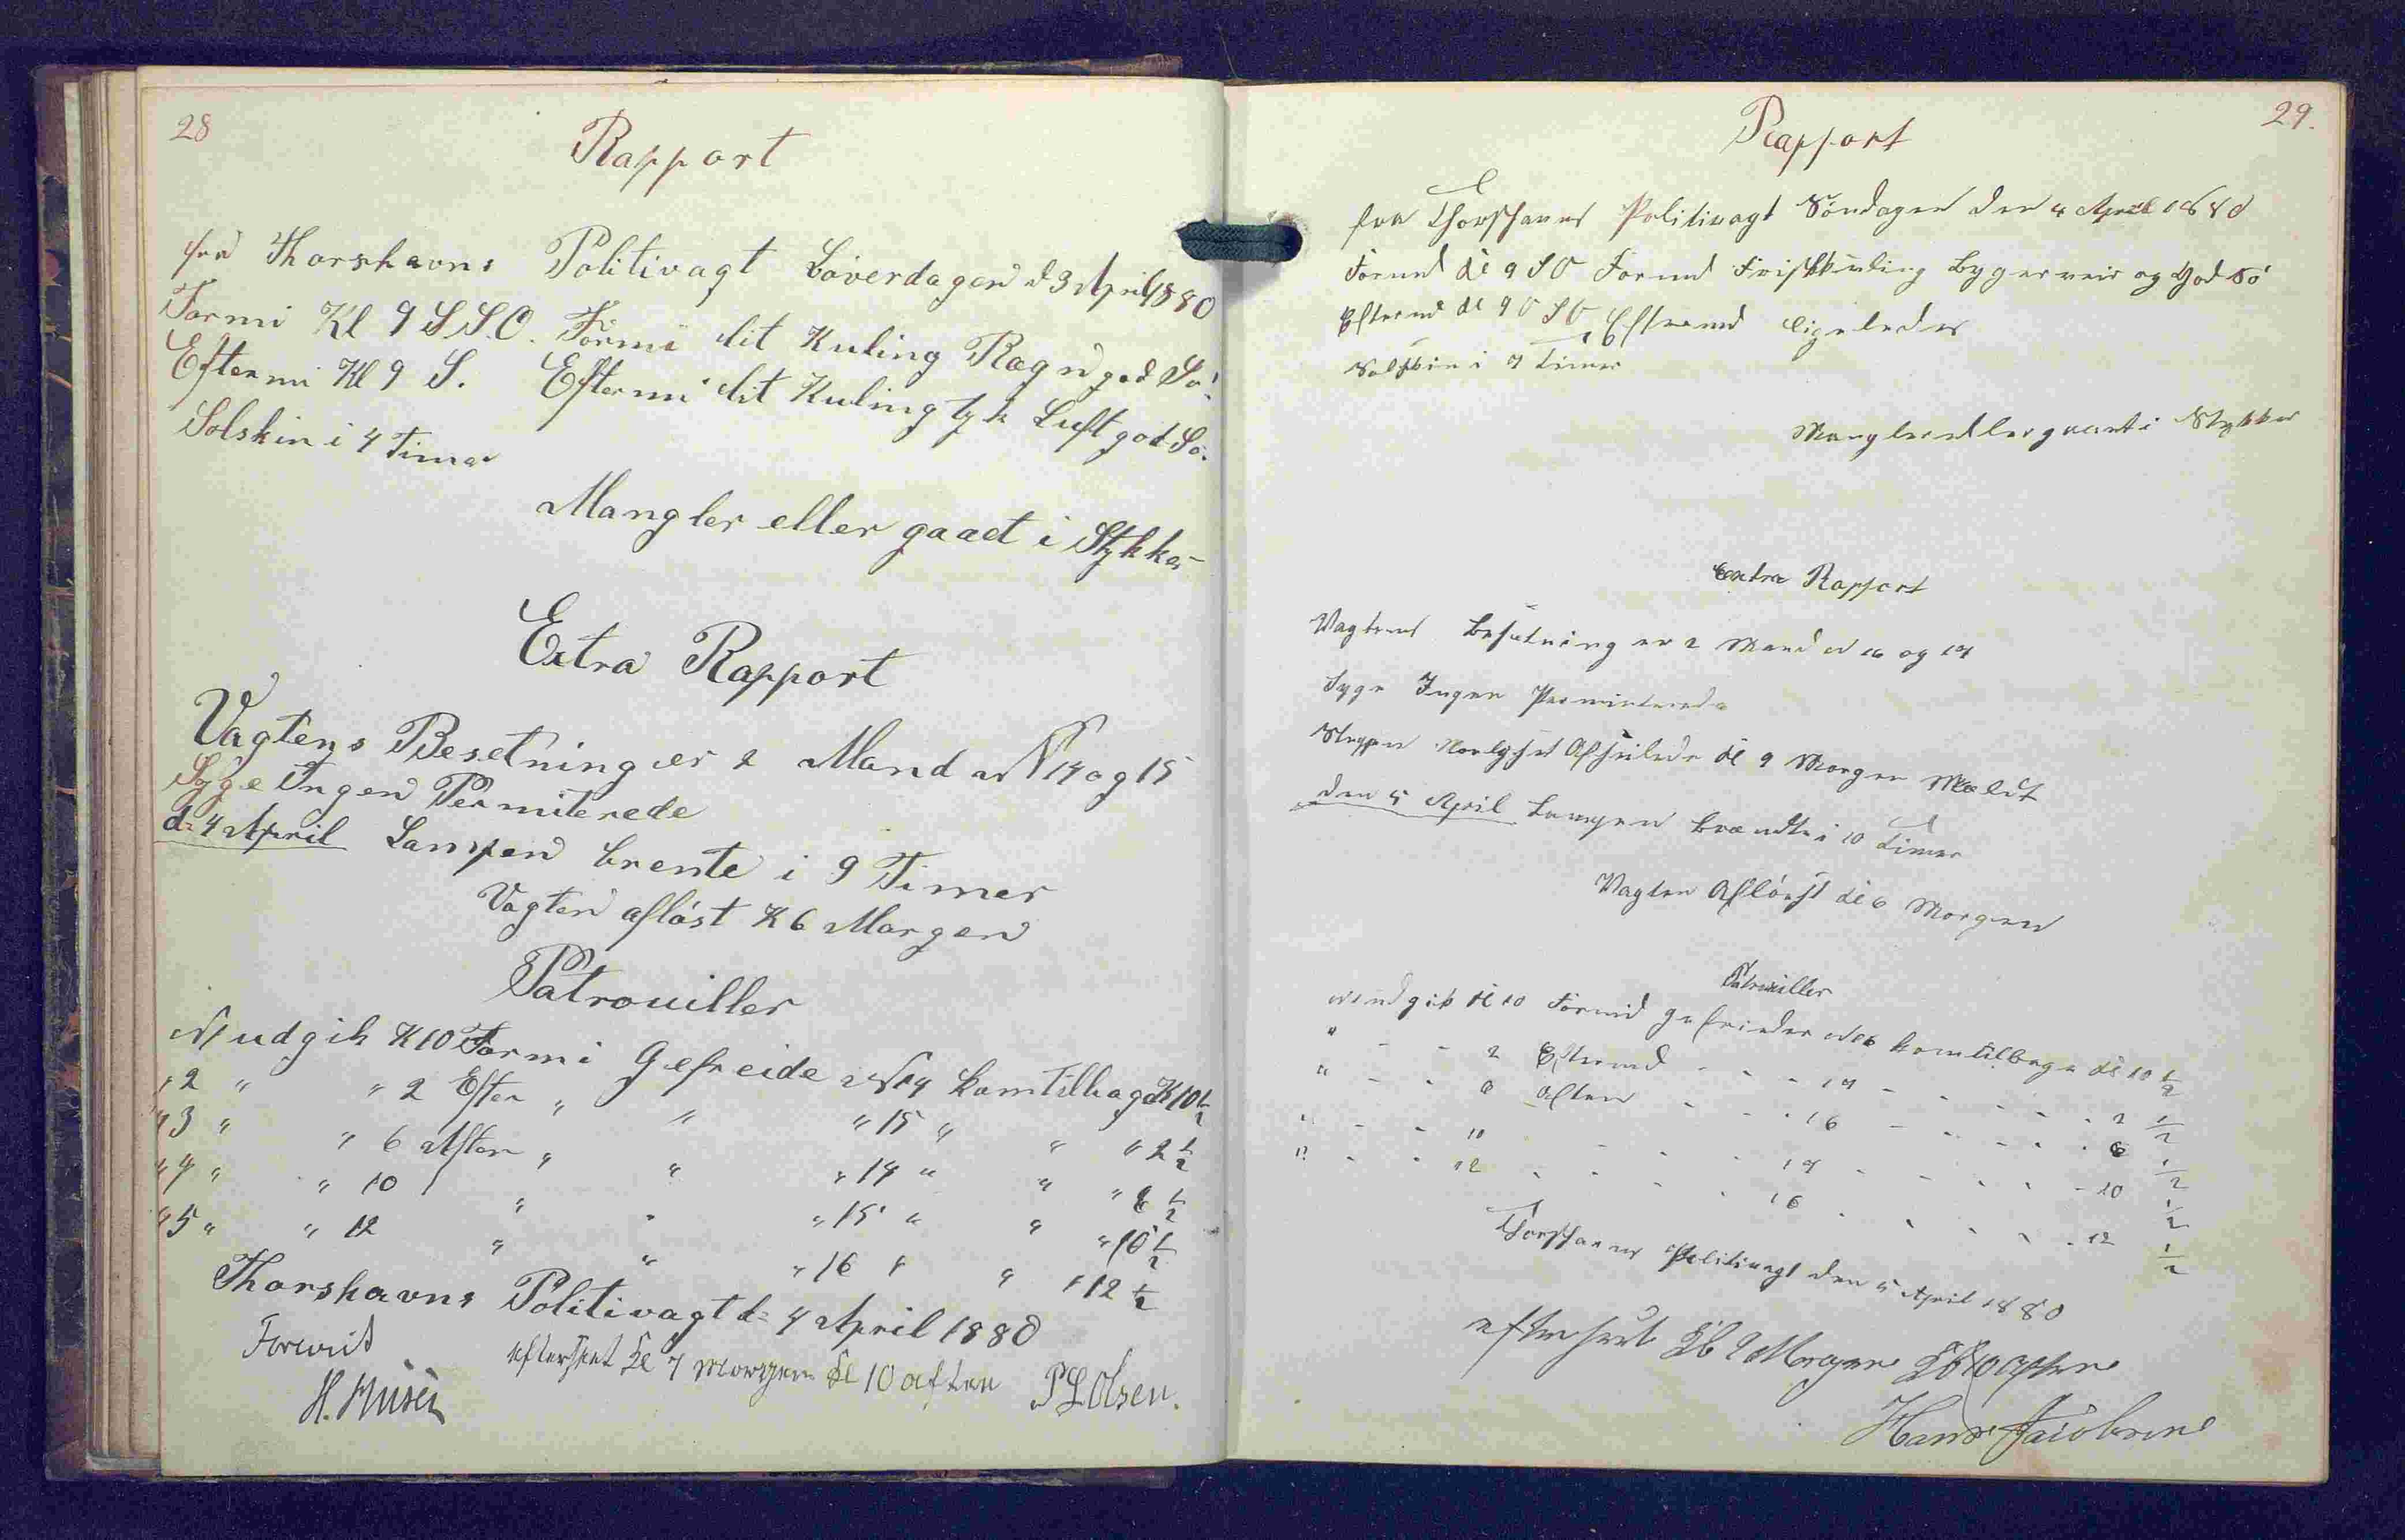 28
Rapport
fra Thorshavns Politivagt Löverdagen d 3 April 1880
Formi Kl 9 S.S.O. Formi lit Kuling Ragn god Sö.
Eftermi Kl 9 S. Eftermi lit Kuling tyk Luft god Sö.
Solskin i 4 Timer
Mangler eller gaaet i Stykker
Extra Rapport
Vagtens Besetning er 2 Mand N 14 og 15
Syge Ingen Permiterede
d: 4 April Lampen brente i 9 Timer
Vagten aflöst K 6 Morgen
Patrouiller
N 1 udgik K 10 Formi Gefreide N 14 kom Tilbage K 10 1/2
" 2 " " 2 Efter " " " 15 " " " 2 1/2
" 3 " " 6 Aften " " " 14 " " " 6 1/2
" 4 " " 10 " " " 15 " " " 10 1/2
" 5 " " 12 " " " 16 " " " 12 1/2
Thorshavns Politivagt d: 4 April 1880
Forevist
efterseet Kl 7 Morgen Kl 10 aften PLOlsen.
29.
Rapport
fra Thorshavns Politivagt Söndagen den 4 April 1880
Formd Kl 9 SO Formd Frisk Kuling Bygerveir og God Sö
Eftermd Kl 9 OSO Eftermd ligeledes
Solskin i 7 Timer
Mangler eller gaaet i Stykker
Extra Rapport
Vagtens Besætning er 2 Mand N 16 og 14
Syge Ingen Permiterede
Afseilede Kl 9 Morgen
den 5 April Lampen brændte i 10 Timer
Vagten Aflöest Kl 6 Morgen
Patrouiller
N 1 udgik Kl 10 Formd gefreider N 16 kom tilbage Kl 10 1/2
" - - 2 Eftermd - - - 14 - - - - 2 1/2
" - - 6 Aften - - - 16 - - - - 6 1/2
" - - 10 - - - 14 - - - - 10 1/2
" - - 12 - - - - 16 - - - - 12 1/2
Thorshavns Politivagt den 5 April 1880
efterseet Kl 9 Morgen Kl 10 Aften
Hans Jacobsen